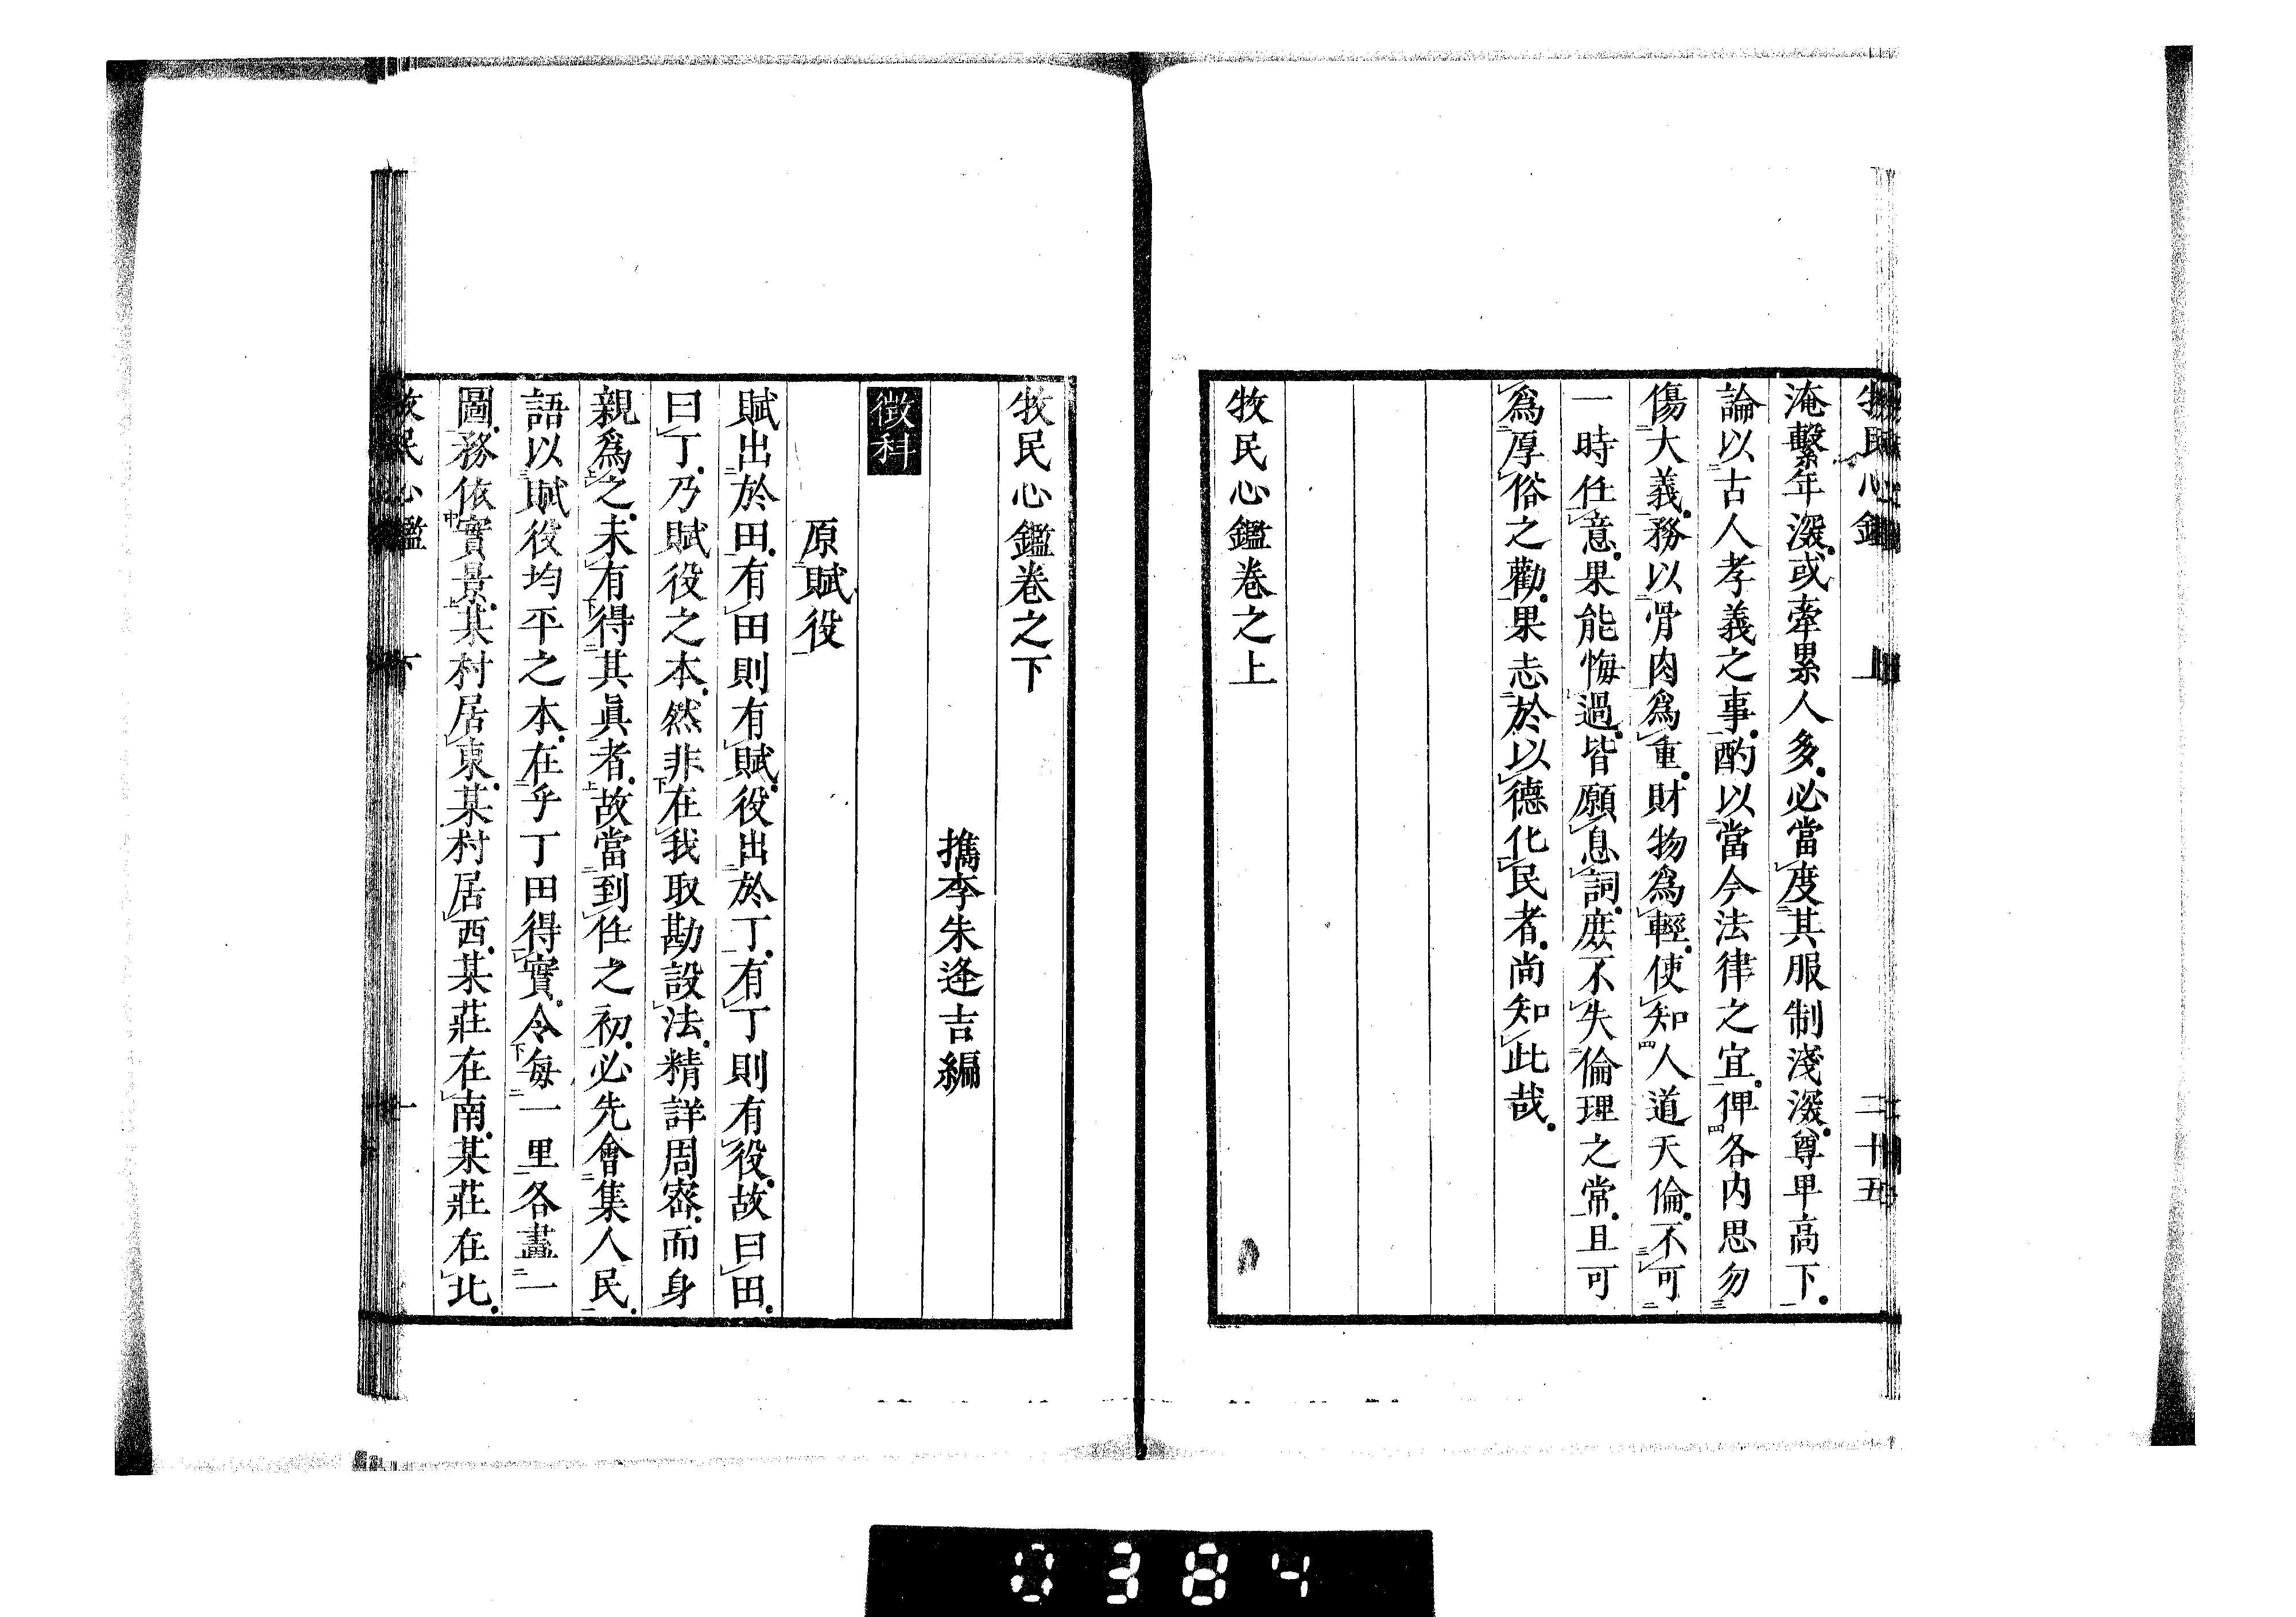 牧民心鑑　上　二十五
淹繫年深或牽累人多必當度其服制淺深尊卑高下
論以古人孝義之事酌以當今法律之宜俾各内思勿
傷大義務以骨肉爲重財物爲輕使知人道天倫不可
一時任意果能悔過皆願息詞庶不失倫理之常且可
爲厚俗之勸果志於以德化民者尚知此哉
牧民心鑑卷之上
牧民心鑑卷之下
檇李朱逢吉編
徴科
原賦役
賦出於田有田則有賦役出於丁有丁則有役故曰田
曰丁乃賦役之本然非在我取勘設法精詳周密而身
親爲之未有得其眞者故當到任之初必先會集人民
語以賦役均平之本在乎丁田得實令每一里各畫一
圖務依實景某村居東某村居西某莊在南某莊在北
牧民心鑑　下　一
0384